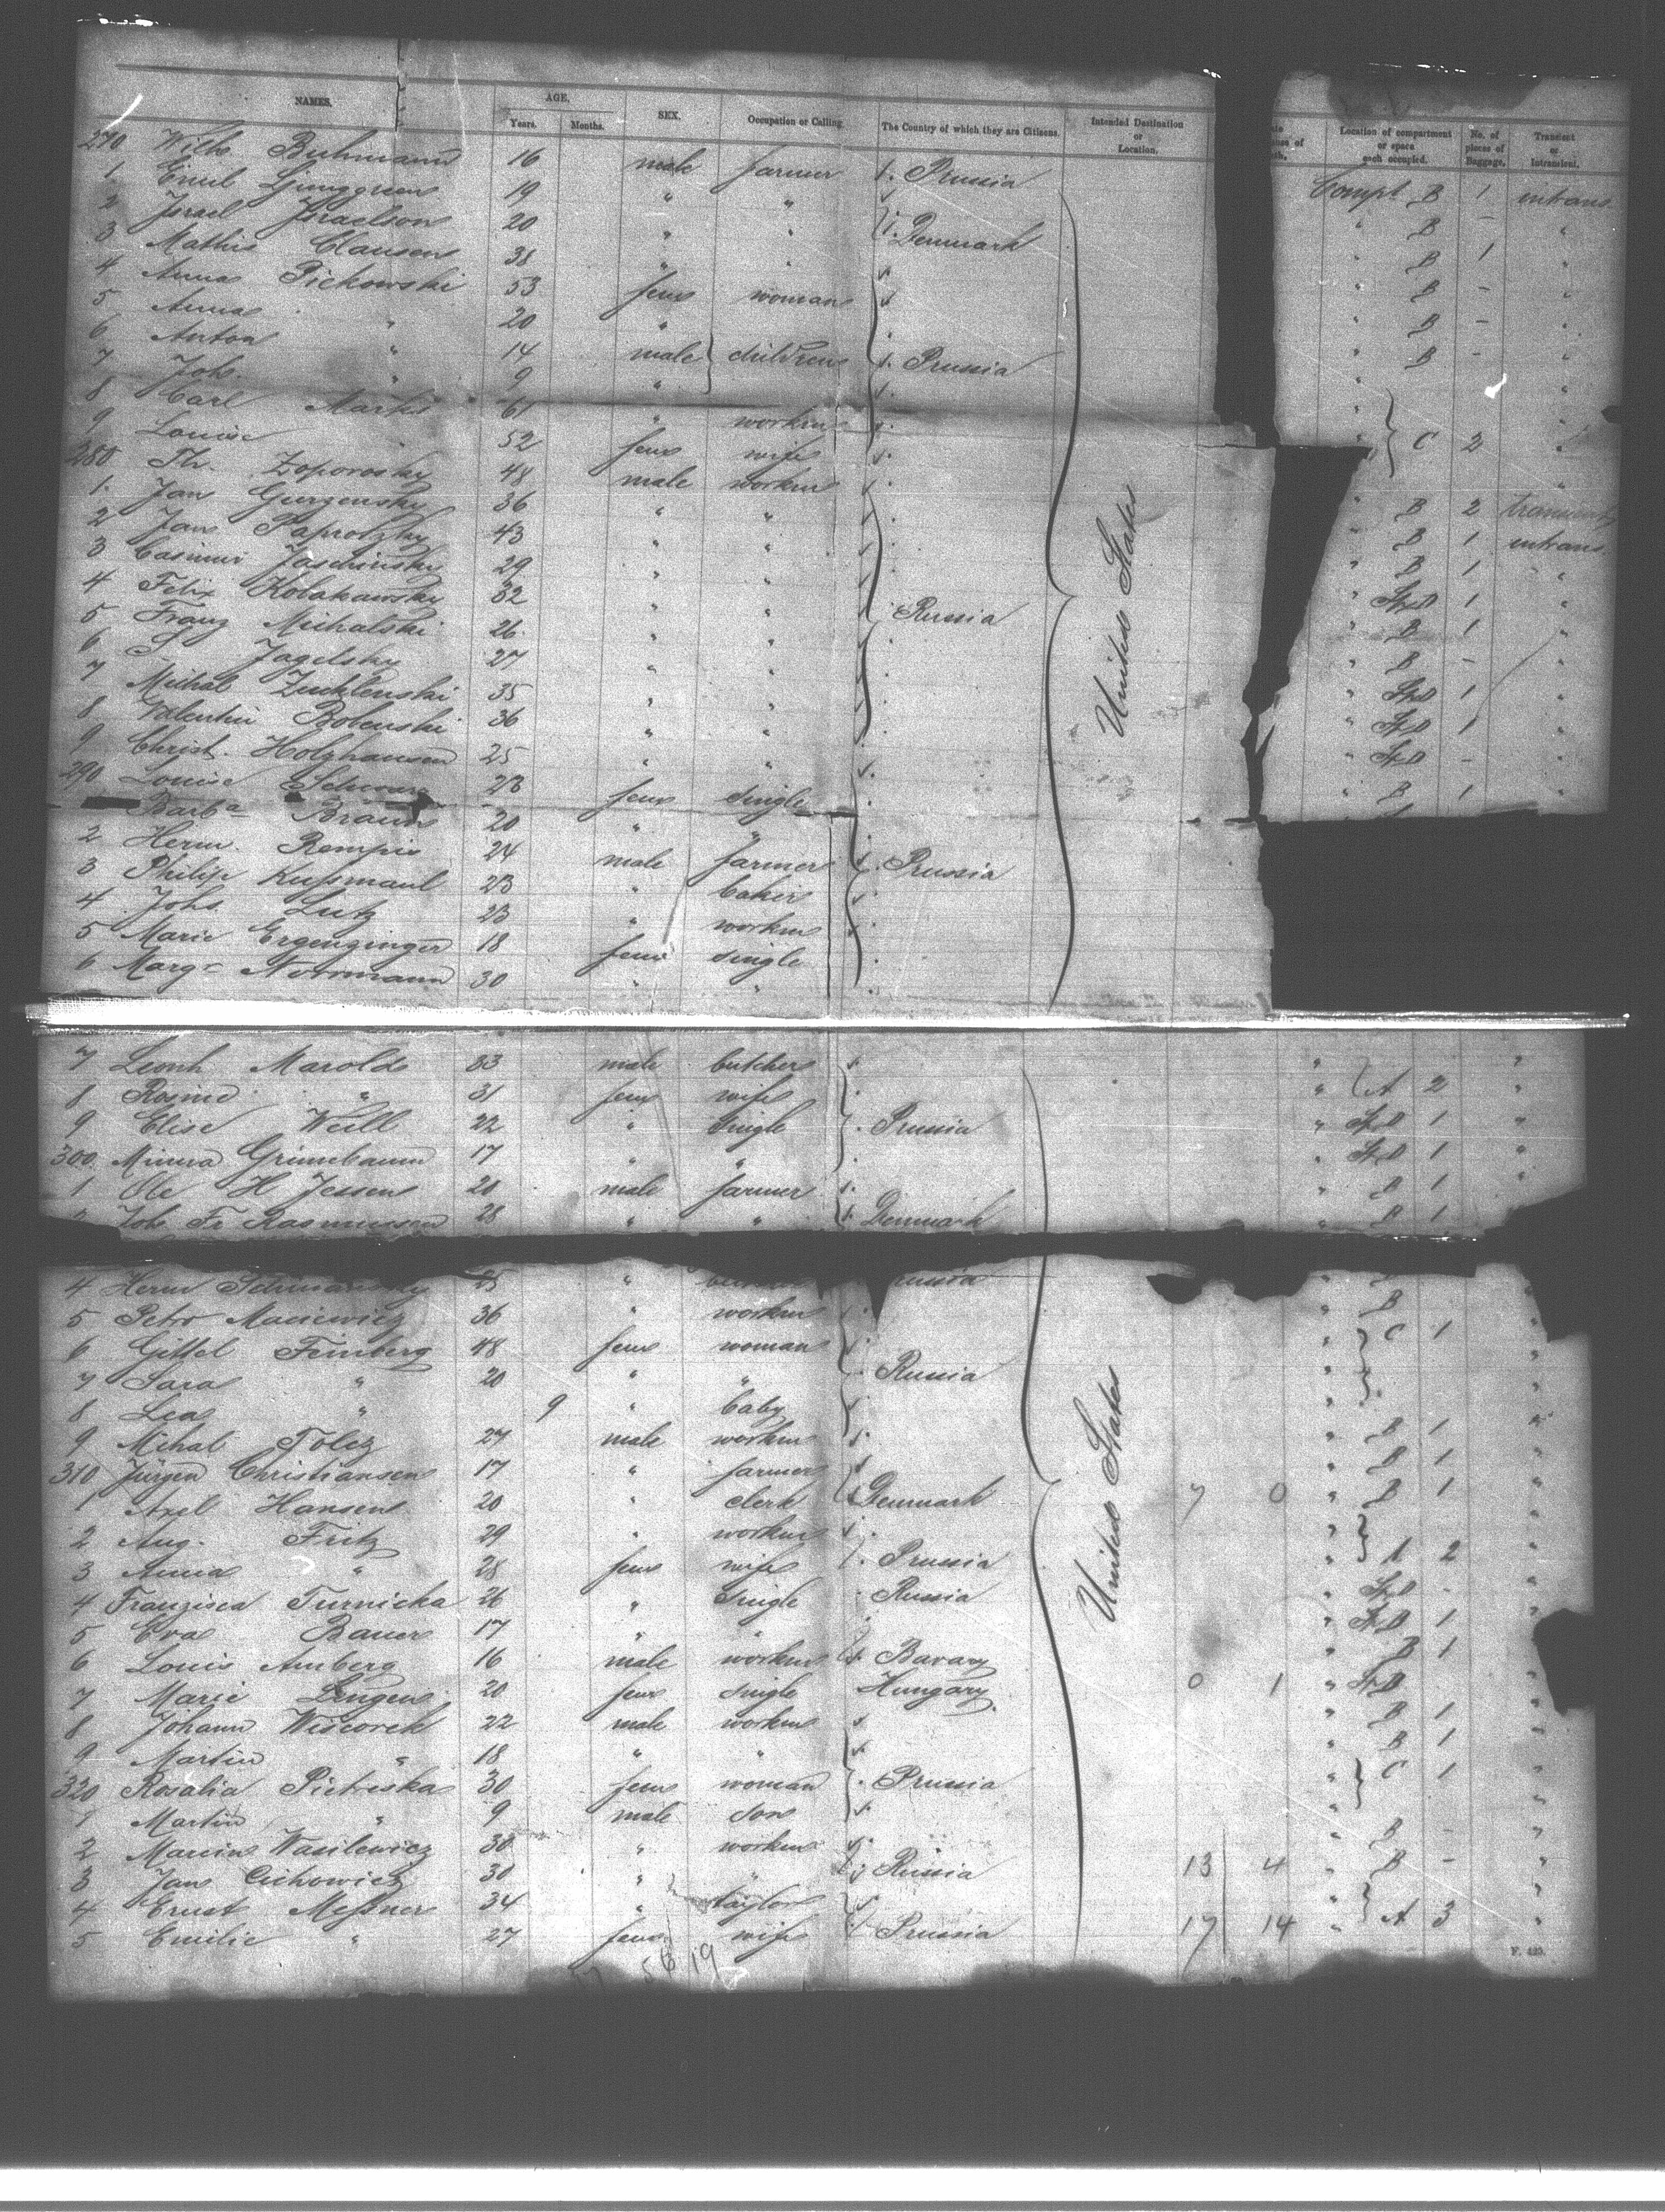 NAMES. AGE. SEX. Occupation or Calling. The Country of which they are Citizens. Intended Destination or Location. Location of compartment or space each occupied. No. of pieces of Baggage. Transient or Intransient.
Years. Months.
270 Wilh. Buhmann 16 male farmer Prussia Compt. B 1 intrans
1 Emil Ljunggreen 19 " " B - "
2 Israel Israelson 20 " " Denmark B 1 "
3 Mathis Clausen 38 " " B - "
4 Anna Pickowski 53 fem woman B - "
5 Anna " 20 " B - "
6 Anton " 14 male children Prussia
7 Joh. " 9 "
8 Carl Marks 61 " workm
9 Louise " 52 fem wife C 2
280 Th. Zoporosky 48 male workm B 2 transient
1 Jan Gurzensky 36 " " B 1 intrans
2 Jan Paprotzky 43 " " B 1 "
3 Casimir Jaschinsky 29 " "
4 Felix Kolakawsky 32 " " Russia
5 Franz Michalski 26 " "
6 S. Jagelsky 27 " "
7 Michal 35 " "
8 Valentin Bobenski 36 " "
9 Christ. Holzhausen 25
290 Louise 23 fem single
Barba Braun 20 " "
2 Herm. Rempis 24 male farmer Prussia
3 Philipp Kußmaul 23 " baker
4 Johs Lutz 23 " workm
5 Marie Ergenzinger 18 fem single
6 Marg. Normann 30 " "
United States
7 Leonh Marold 33 male butcher
8 Rosine " 31 fem wife A 2 "
9 Elise Weill 22 " single Prussia 1 "
300 Minna Grünebaum 17 " " 1 "
1 Ole H Jessen 21 male farmer B 1 "
Joh. Fr Rasmussen 28 " " Denmark B 1
4 Herm 25 "
5 Petro Maciewicz 36 " workm B
6 Gittel Feinberg 48 fem woman C 1
7 Sara " 20 " " Russia
8 Lea " 9 " baby
9 Mihal Tolez 27 male workm B 1
310 Jürgen Christiansen 17 " farmer B 1
1 Axel Hansen 20 " clerk Denmark 7 0 B 1
2 Aug. Fritz 29 " workm
3 Anna " 28 fem wife Prussia A 2
4 Franzisca Turnicka 26 " single Russia -
5 Eva Bauer 17 " " 1
6 Louis Amberg 16 male workm Bavary B 1
7 Marie Lengen 20 fem single Hungary 0 1
8 Johann Wiscorek 22 male workm B 1
9 Martin " 18 " " B 1
320 Rosalia Pietreska 30 fem woman Prussia C 1
1 Martin " 9 male son
2 Marcin Wasilewicz 30 " workm B -
3 Jan Cichowicz 30 " " Russia 13 4 B -
4 Ernst Meßner 34 " taylor
5 Emilie " 27 fem wife Prussia 17 14 A 3
United States
56 19
F. 425.